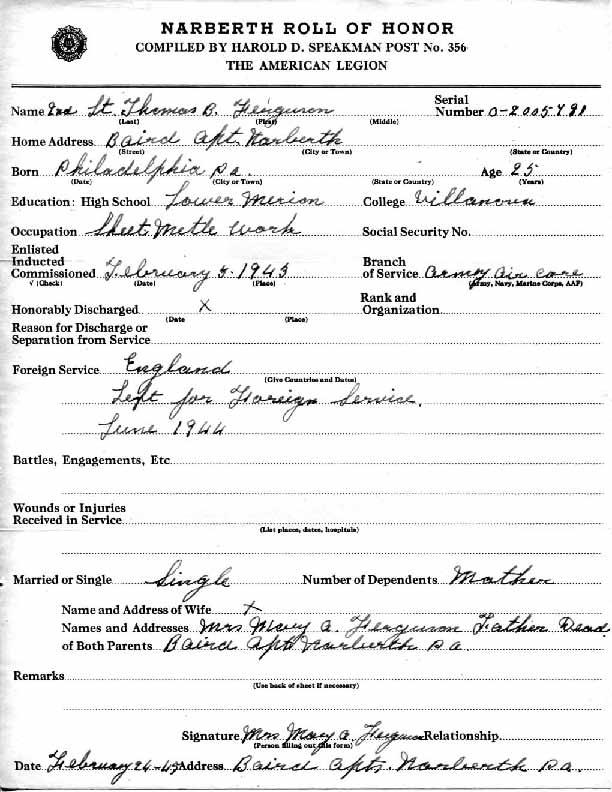 NARBERTH ROLL OF HONOR
COMPILED BY HAROLD D. SPEAKMAN POST No. 356
THE AMERICAN LEGION
Name 2nd Lt. Thomas B. Ferguson Serial Number O-2005781
(Last) (First) (Middle)
Home Address Baird Apt. Narberth
(Street) (City or Town) (State or Country)
Born Philadelphia Pa. Age 25
(Date) (City or Town) (State or Country) (Years)
Education: High School Lower Merion College Villanova
Occupation Sheet Metle Work Social Security No.
Enlisted
Inducted Branch
Commissioned February 5-1943 of Service Army Air Core
√ (Check) (Date) (Place) (Army, Navy, Marine Corps, AAF)
Honorably Discharged X Rank and Organization
(Date (Place)
Reason for Discharge or
Separation from Service
Foreign Service England
(Give Countries and Dates)
Left for Foreign Service.
June 1944
Battles, Engagements, Etc
Wounds or Injuries
Received in Service
(List places, dates, hospitals)
Married or Single Single Number of Dependents Mother
Name and Address of Wife X
Names and Addresses Mrs Mary A. Ferguson Father Dead
of Both Parents Baird Apt Narberth Pa
Remarks
(Use back of sheet if necessary)
Signature Mrs Mary A. Ferguson Relationship
(Person filling out this form)
Date February 24-45 Address Baird Apts. Narberth Pa.